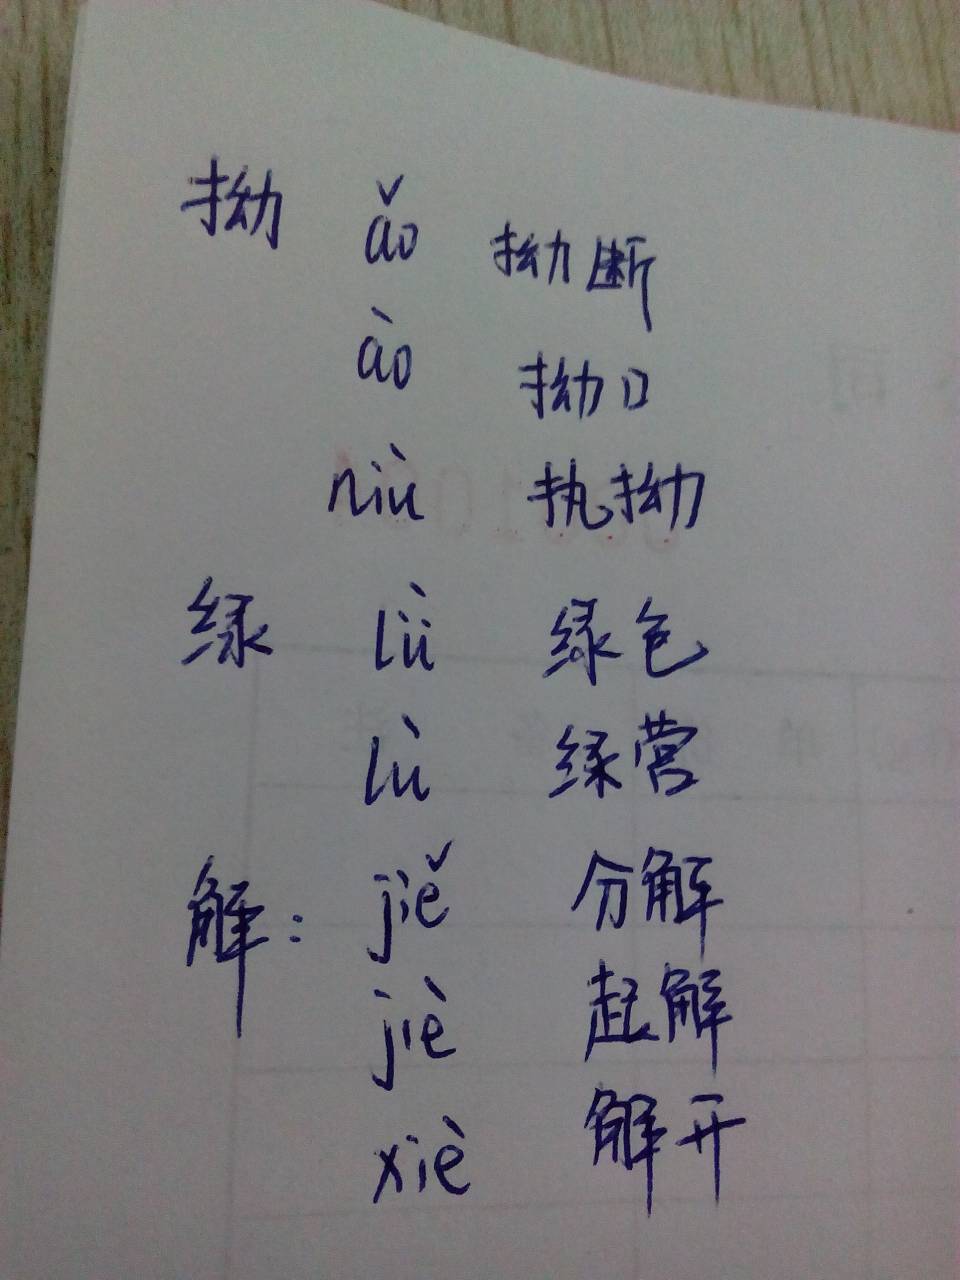 拗 ǎo 拗断
ào 拗口
niù 执拗
绿 lǜ 绿色
lù 绿营
解: jiě 分解
jiè 起解
xiè 解开